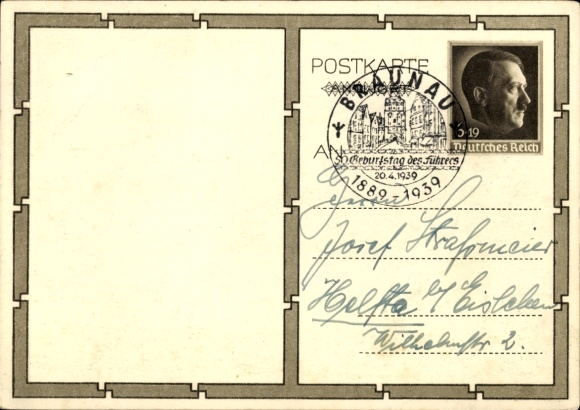 POSTKARTE
BRAUNAU
6+19
Deutsches Reich
AN
50. Geburtstag des Führers
20.4.1939
1889-1939
Herrn
Josef Straßmeier
Helfta b/Eisleben
Wilhelmstr 2.